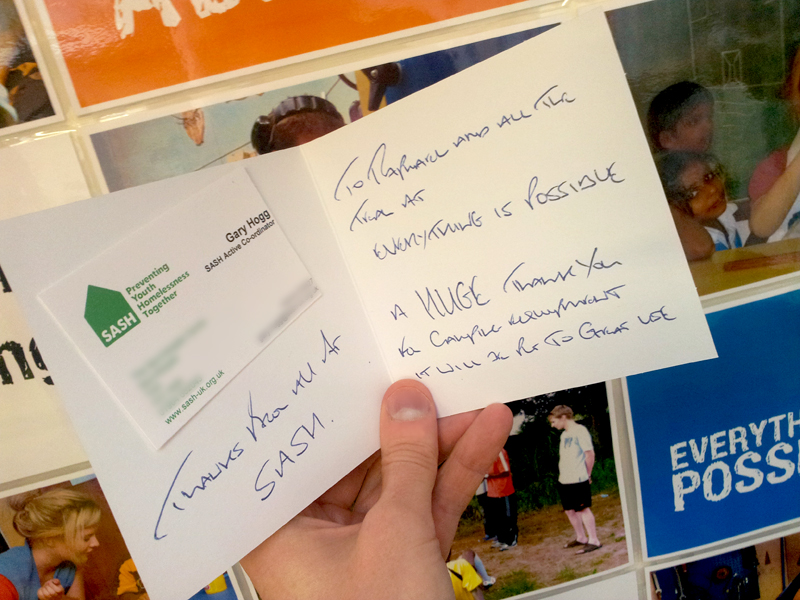 Gary Hogg
SASH Active Co-ordinator
SASH
Preventing
Youth
Homelessness
Together
www.sash-uk.org.uk
THANKS FROM ALL AT
SASH.
TO RAPHAEL AND ALL THE
TEAM AT
EVERYTHING IS POSSIBLE
A HUGE THANK YOU
FOR CAMPING EQUIPMENT
IT WILL BE PUT TO GREAT USE
EVERYTH
POSSI